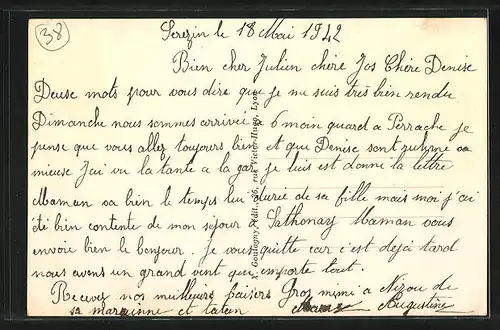 38
Serezin le 18 Mai 1942
Bien cher Julien chère Jos Chère Denise
Deuse mots pour vous dire que je me suis très bien rendu
Dimanche nous sommes arrivée a 6 moin quard a Perrache je
pense que vous allez toujours bien et que Denise sont ruhme va
mieuse J'ai vu la tante a la gare je luis est donné la lettre
Maman va bien le temps lui durée de sa fille mais moi j'ai
été bien contente de mon séjour a Sathonay Maman vous
envoie bien le bonjour. Je vous quitte car c'est déjà tard
nous avons un grand vent que emporte tout.
Recevez nos meilleurs baisers Gros mimi a Nizou de
sa marainne et taten
Augustine
Goutagny, édit., 26, rue Victor-Hugo, Lyon